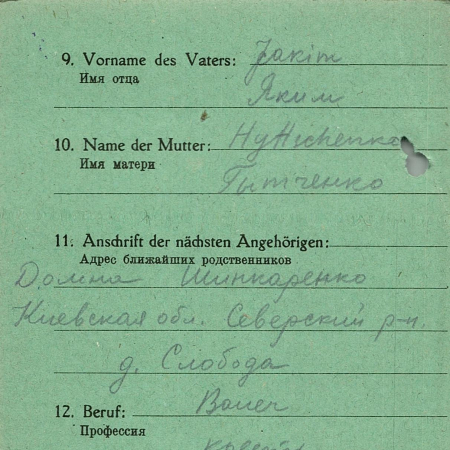 9. Vorname des Vaters: Jakim
Имя отца
Яким
10. Name der Mutter:
Имя матери
Гытченко
11. Anschrift der nächsten Angehörigen:
Адрес ближайших родственников
Домна Шинкаренко
Киевская обл. Северский р-н.
д. Слобода
12. Beruf: Bauer
Профессия